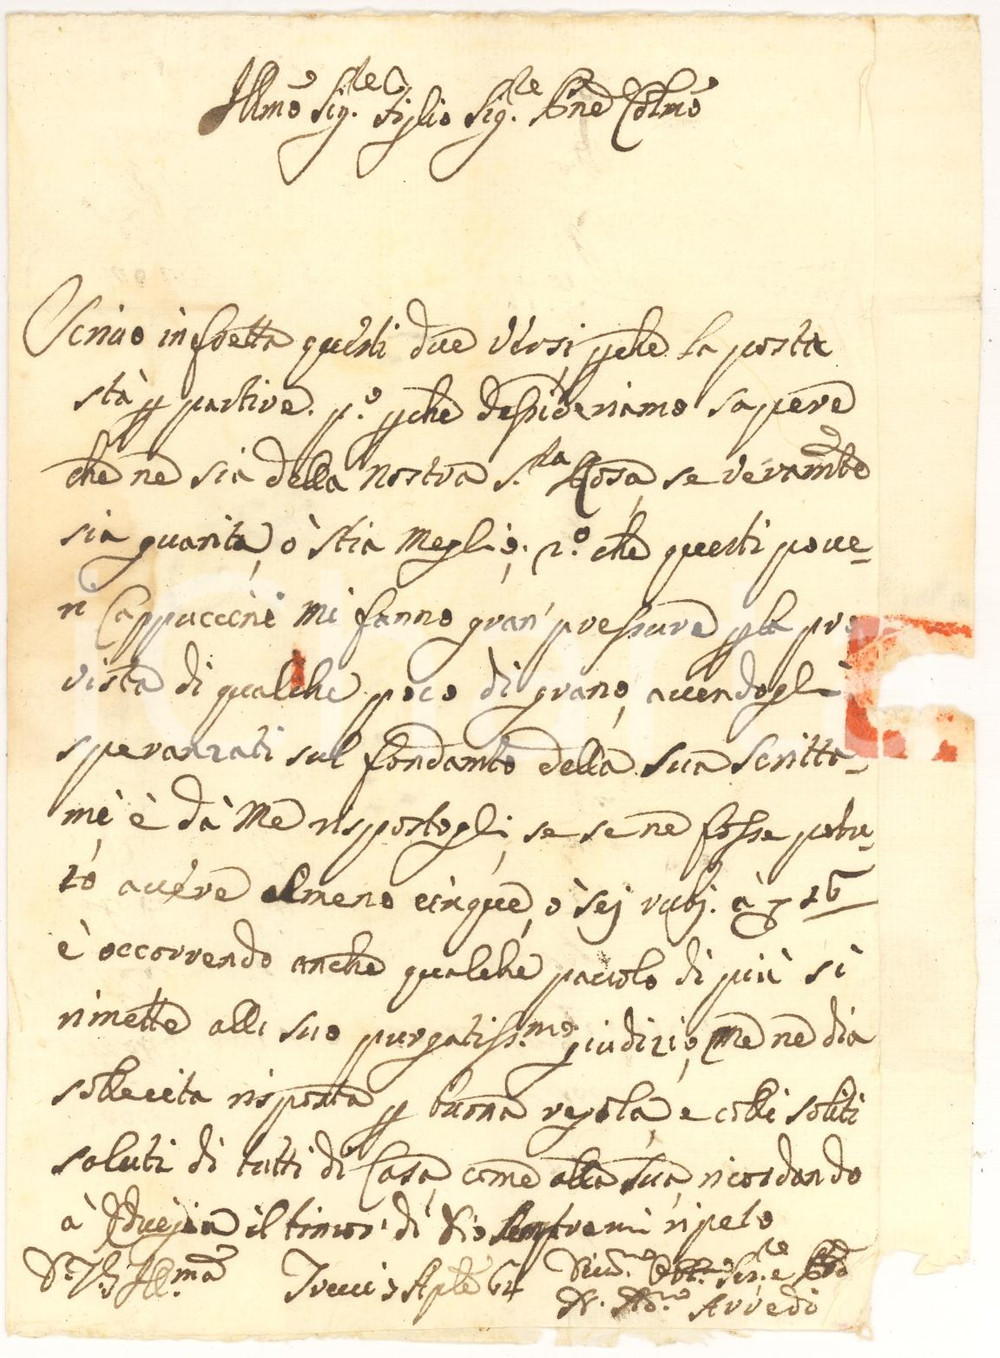 Illmo Sig.re Figlio Sig.re Pne Colmo
Scrivo in fretta questi due Versi, pche la posta
stà p partire. p.o pche desideriamo sapere
che ne sia della nostra S.ra Rosa, se veramte
sia guarita, ò stia Meglio; 2.o che questi pove-
ri Cappuccini mi fanno gran' pressure p la pro
vista di qualche poco di grano, avendogli
speranzati sul fondamto della sua Scritta-
mi è dà Me rispostogli, se se ne fosse potu-
to avere almeno cinque, ò sej rubj. à
è occorrendo anche qualche paolo di più si
rimette alli suo purgatiss.mo giudizio, Me ne dia
sollecita risposta p buona regola, e colli soliti
saluti di tutti di Casa, come alla sua, ricordando
à il timor' di Dio sempre mi ripeto
Di V.S. Ill.ma Aple 64 Ser.e
Arvedi